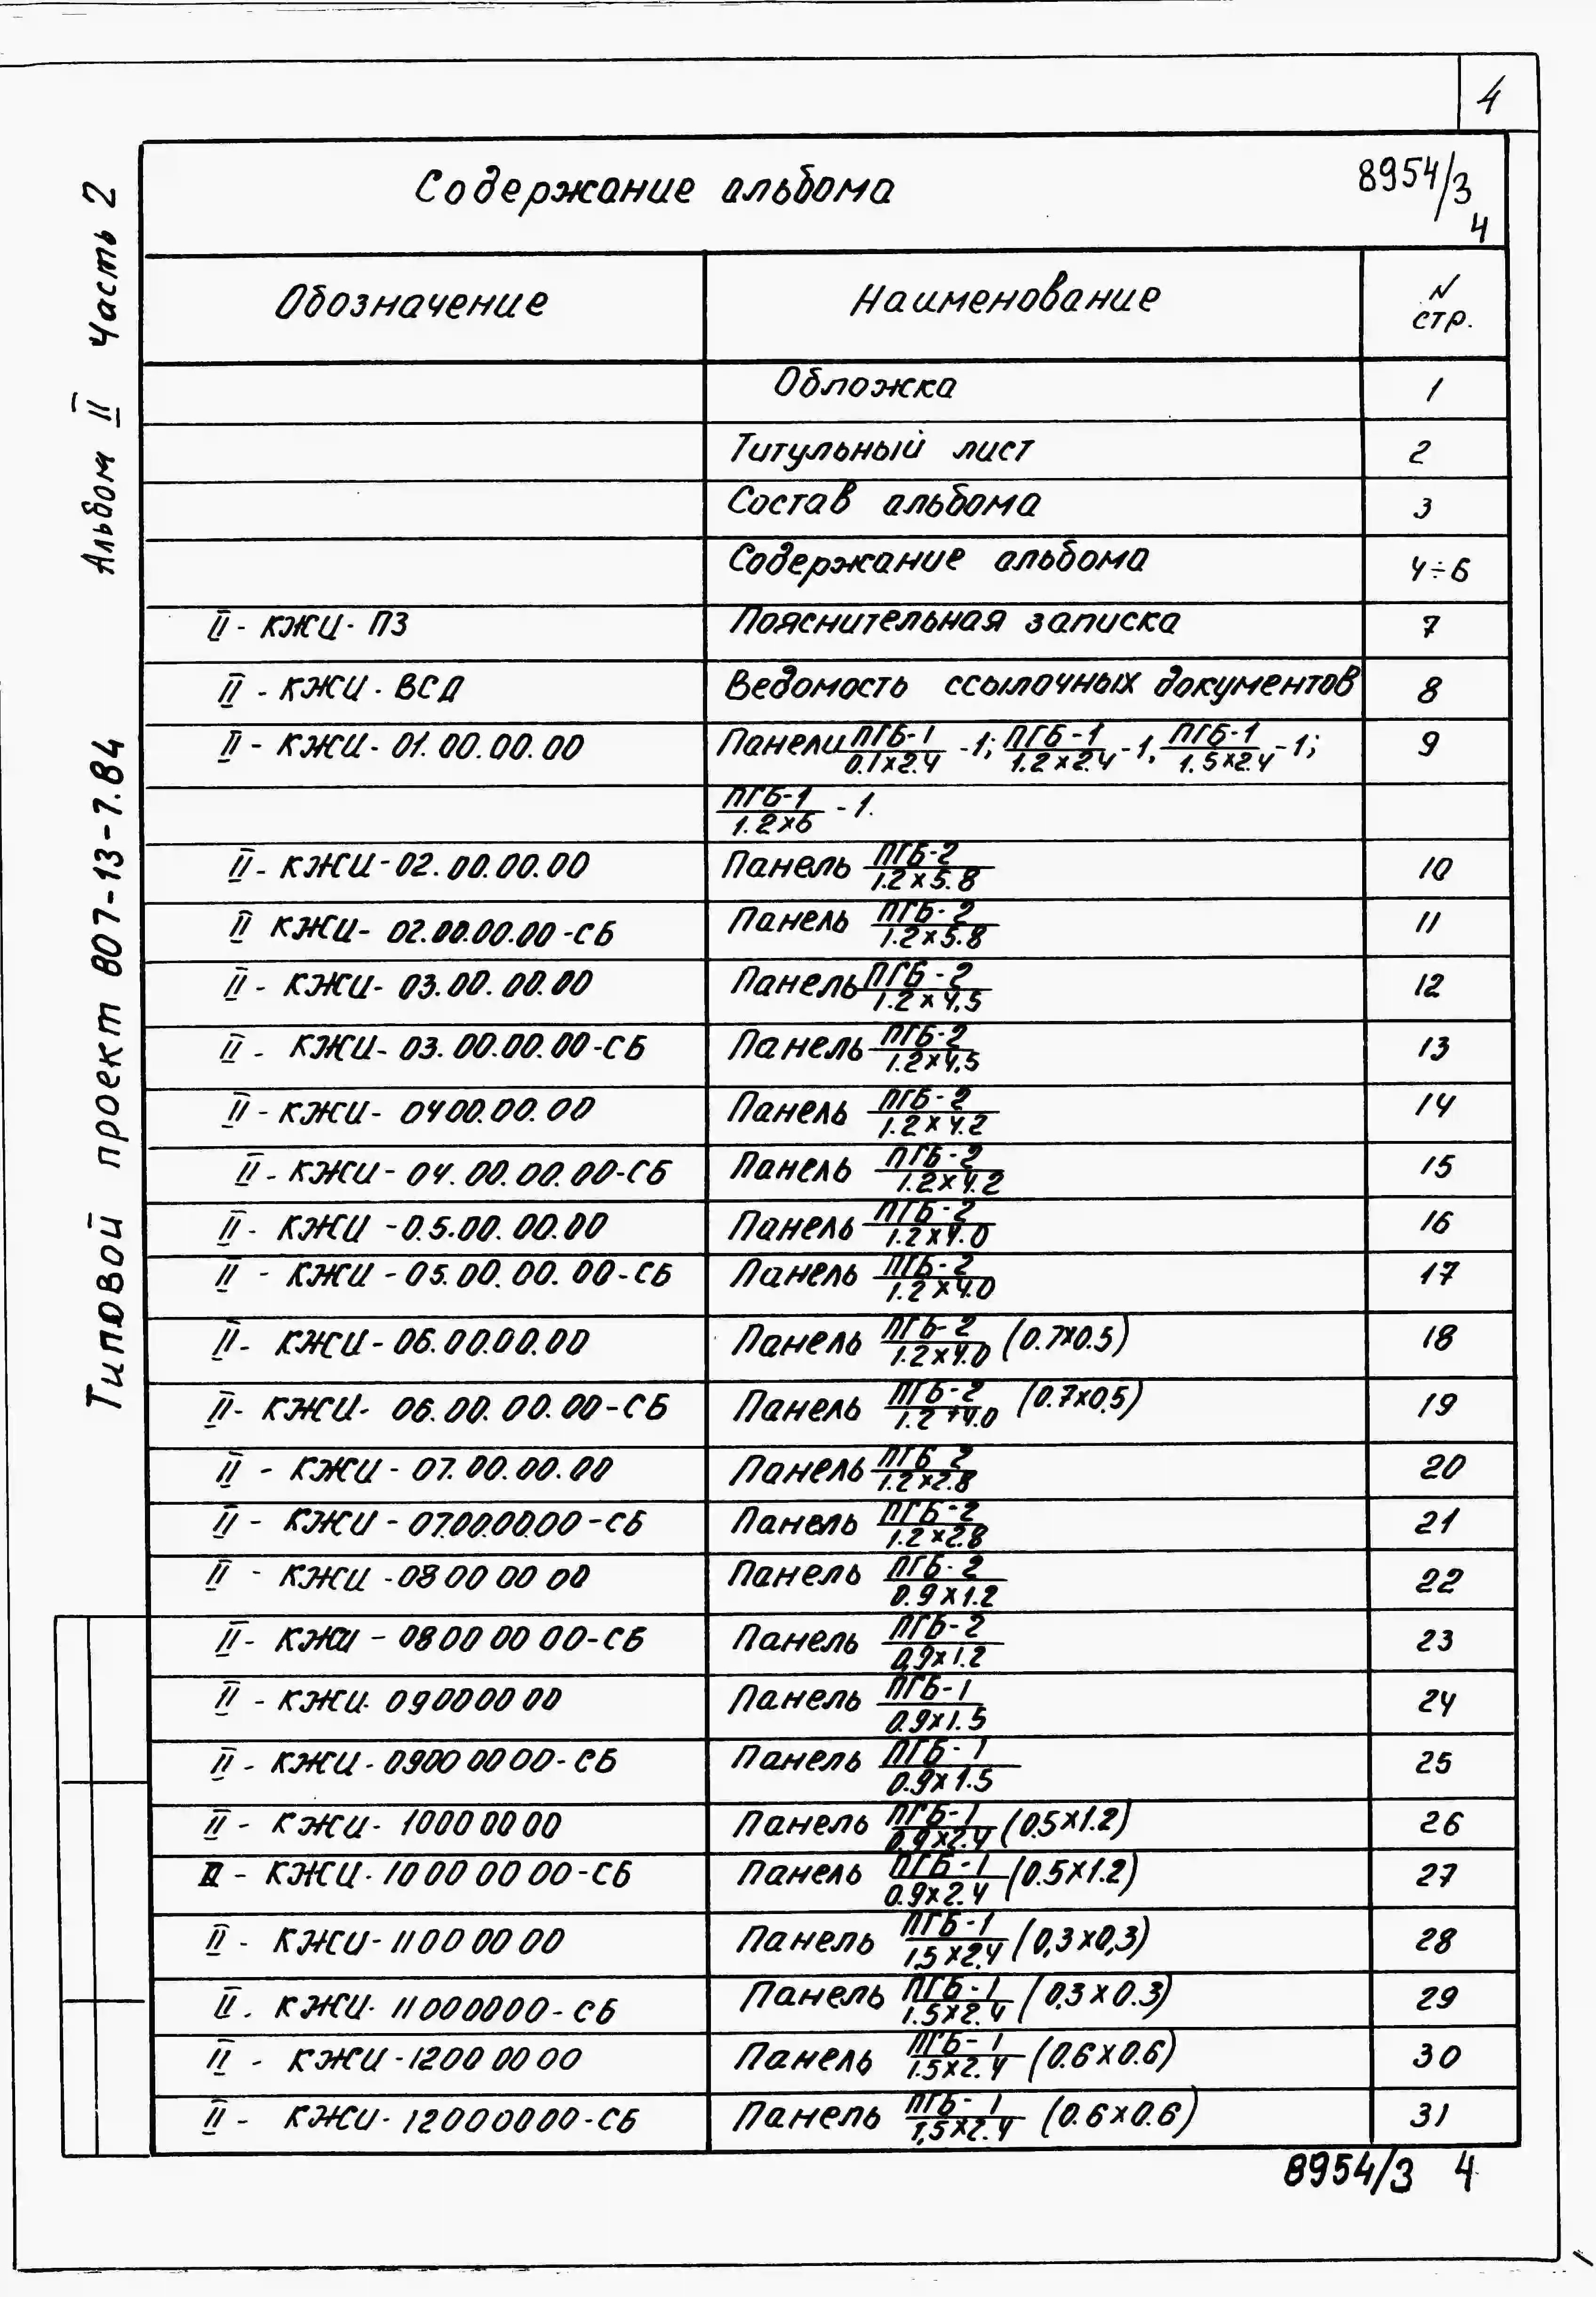 4
Содержание альбома 8954/3 4
Обозначение Наименование N стр.
Обложка 1
Титульный лист 2
Состав альбома 3
Содержание альбома 4÷6
II - КЖИ - ПЗ Пояснительная записка 7
II - КЖИ - ВСД Ведомость ссылочных документов 8
II - КЖИ - 01.00.00.00 Панели ПГБ-1/0.1х2.4 -1; ПГБ-1/1.2х2.4 -1, ПГБ-1/1.5х2.4 -1; 9
ПГБ-1/1.2х6 -1.
II - КЖИ - 02.00.00.00 Панель ПГБ-2/1.2х5.8 10
II КЖИ - 02.00.00.00 -СБ Панель ПГБ-2/1.2х5.8 11
II - КЖИ - 03.00.00.00 Панель ПГБ-2/1.2х4,5 12
II - КЖИ - 03.00.00.00-СБ Панель ПГБ-2/1.2х4,5 13
II - КЖИ - 0400.00.00 Панель ПГБ-2/1.2х4.2 14
II - КЖИ - 04.00.00.00-СБ Панель ПГБ-2/1.2х4.2 15
II - КЖИ - 0.5.00.00.00 Панель ПГБ-2/1.2х4.0 16
II - КЖИ - 05.00.00.00-СБ Панель ПГБ-2/1.2х4.0 17
II - КЖИ - 06.00.00.00 Панель ПГБ-2/1.2х4.0 (0.7х0.5) 18
II - КЖИ - 06.00.00.00-СБ Панель ПГБ-2/1.2х4.0 (0.7х0,5) 19
II - КЖИ - 07.00.00.00 Панель ПГБ 2/1.2х2.8 20
II - КЖИ - 07.00.00.00-СБ Панель ПГБ-2/1.2х2.8 21
II - КЖИ - 08 00 00 00 Панель ПГБ-2/0.9х1.2 22
II - КЖИ - 08 00 00 00-СБ Панель ПГБ-2/0,9х1.2 23
II - КЖИ - 09 00 00 00 Панель ПГБ-1/0.9х1.5 24
II - КЖИ - 09 00 00 00-СБ Панель ПГБ-1/0.9х1.5 25
II - КЖИ - 10 00 00 00 Панель ПГБ-1/0,9х2.4 (0.5х1.2) 26
II - КЖИ - 10 00 00 00-СБ Панель ПГБ-1/0.9х2.4 (0.5х1.2) 27
II - КЖИ - 11 00 00 00 Панель ПГБ-1/1.5х2.4 (0,3х0,3) 28
II - КЖИ - 11 00 00 00-СБ Панель ПГБ-1/1.5х2.4 (0,3х0.3) 29
II - КЖИ - 12 00 00 00 Панель ПГБ-1/1.5х2.4 (0.6х0.6) 30
II - КЖИ - 12 00 00 00-СБ Панель ПГБ-1/1,5х2.4 (0.6х0.6) 31
8954/3 4
Типовой проект 807-13-7.84 Альбом II Часть 2